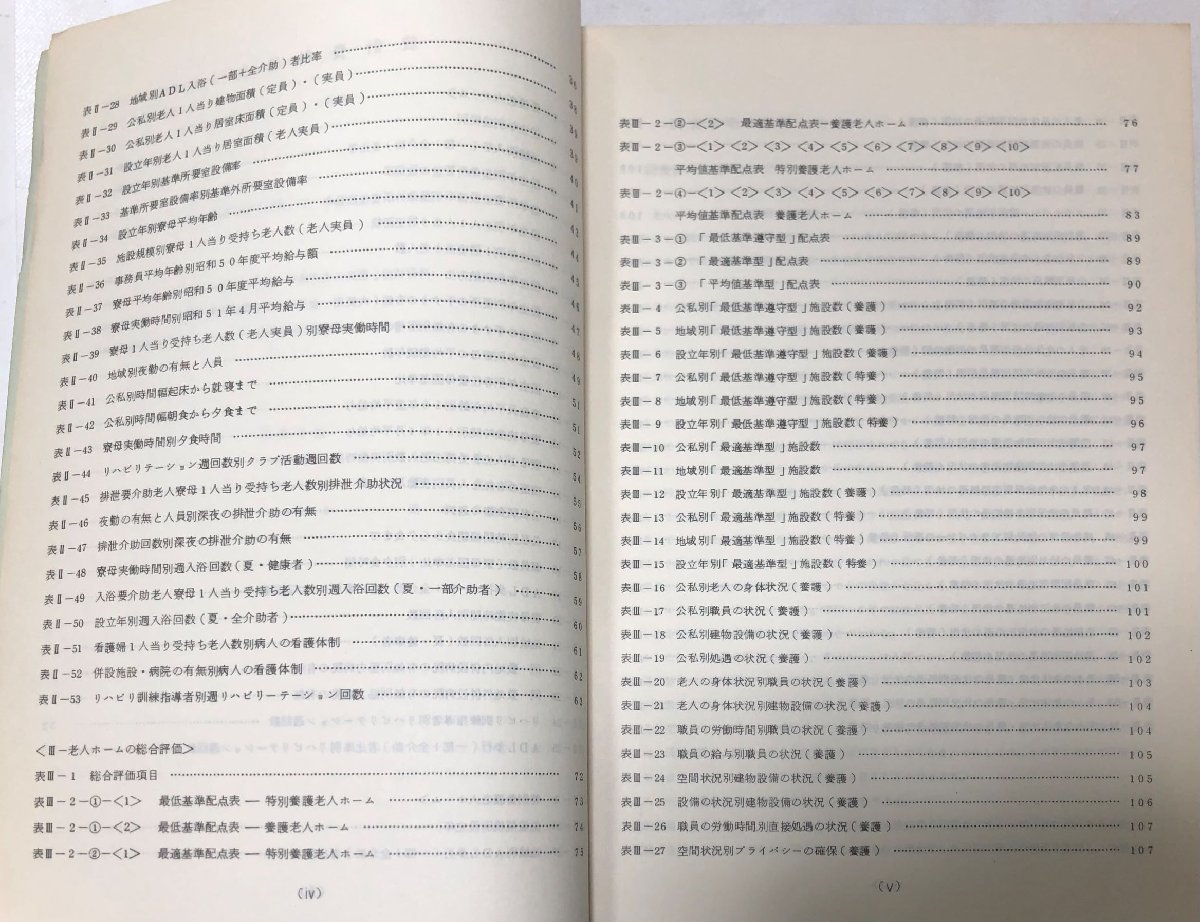 表Ⅱ－28 地域別ADL入浴（一部＋全介助）者比率 …… 36
表Ⅱ－29 公私別老人1人当り建物面積（定員）・（実員） …… 38
表Ⅱ－30 公私別老人1人当り居室床面積（定員）・（実員） …… 39
表Ⅱ－31 設立年別老人1人当り居室面積（老人実員） …… 39
表Ⅱ－32 設立年別基準所要室設備率 …… 40
表Ⅱ－33 基準所要室設備率別基準外所要室設備率 …… 41
表Ⅱ－34 設立年別寮母平均年齢 …… 43
表Ⅱ－35 施設規模別寮母1人当り受持ち老人数（老人実員） …… 44
表Ⅱ－36 事務員平均年齢別昭和50年度平均給与額 …… 45
表Ⅱ－37 寮母平均年齢別昭和50年度平均給与 …… 46
表Ⅱ－38 寮母実働時間別昭和51年4月平均給与 …… 47
表Ⅱ－39 寮母1人当り受持ち老人数（老人実員）別寮母実働時間 …… 48
表Ⅱ－40 地域別夜勤の有無と人員 …… 49
表Ⅱ－41 公私別時間幅起床から就寝まで …… 51
表Ⅱ－42 公私別時間幅朝食から夕食まで …… 51
表Ⅱ－43 寮母実働時間別夕食時間 …… 52
表Ⅱ－44 リハビリテーション週回数別クラブ活動週回数 …… 54
表Ⅱ－45 排泄要介助老人寮母1人当り受持ち老人数別排泄介助状況 …… 55
表Ⅱ－46 夜勤の有無と人員別深夜の排泄介助の有無 …… 56
表Ⅱ－47 排泄介助回数別深夜の排泄介助の有無 …… 57
表Ⅱ－48 寮母実働時間別週入浴回数（夏・健康者） …… 58
表Ⅱ－49 入浴要介助老人寮母1人当り受持ち老人数別週入浴回数（夏・一部介助者） …… 59
表Ⅱ－50 設立年別週入浴回数（夏・全介助者） …… 60
表Ⅱ－51 看護婦1人当り受持ち老人数別病人の看護体制 …… 61
表Ⅱ－52 併設施設・病院の有無別病人の看護体制 …… 62
表Ⅱ－53 リハビリ訓練指導者別週リハビリーテーション回数 …… 63
＜Ⅲ－老人ホームの総合評価＞
表Ⅲ－1 総合評価項目 …… 72
表Ⅲ－2－①－＜1＞ 最低基準配点表 ― 特別養護老人ホーム …… 73
表Ⅲ－2－①－＜2＞ 最低基準配点表 ― 養護老人ホーム …… 74
表Ⅲ－2－②－＜1＞ 最適基準配点表 ― 特別養護老人ホーム …… 75
（Ⅳ）
表Ⅲ－2－②－＜2＞ 最適基準配点表－養護老人ホーム …… 76
表Ⅲ－2－③－＜1＞＜2＞＜3＞＜4＞＜5＞＜6＞＜7＞＜8＞＜9＞＜10＞
平均値基準配点表 特別養護老人ホーム …… 77
表Ⅲ－2－④－＜1＞＜2＞＜3＞＜4＞＜5＞＜6＞＜7＞＜8＞＜9＞＜10＞
平均値基準配点表 養護老人ホーム …… 83
表Ⅲ－3－① 「最低基準遵守型」配点表 …… 89
表Ⅲ－3－② 「最適基準型」配点表 …… 89
表Ⅲ－3－③ 「平均値基準型」配点表 …… 90
表Ⅲ－4 公私別「最低基準遵守型」施設数（養護） …… 92
表Ⅲ－5 地域別「最低基準遵守型」施設数（養護） …… 93
表Ⅲ－6 設立年別「最低基準遵守型」施設数（養護） …… 94
表Ⅲ－7 公私別「最低基準遵守型」施設数（特養） …… 95
表Ⅲ－8 地域別「最低基準遵守型」施設数（特養） …… 95
表Ⅲ－9 設立年別「最低基準遵守型」施設数（特養） …… 96
表Ⅲ－10 公私別「最適基準型」施設数 …… 97
表Ⅲ－11 地域別「最適基準型」施設数 …… 97
表Ⅲ－12 設立年別「最適基準型」施設数（養護） …… 98
表Ⅲ－13 公私別「最適基準型」施設数（特養） …… 99
表Ⅲ－14 地域別「最適基準型」施設数（特養） …… 99
表Ⅲ－15 設立年別「最適基準型」施設数（特養） …… 100
表Ⅲ－16 公私別老人の身体状況（養護） …… 101
表Ⅲ－17 公私別職員の状況（養護） …… 101
表Ⅲ－18 公私別建物設備の状況（養護） …… 102
表Ⅲ－19 公私別処遇の状況（養護） …… 102
表Ⅲ－20 老人の身体状況別職員の状況（養護） …… 103
表Ⅲ－21 老人の身体状況別建物設備の状況（養護） …… 104
表Ⅲ－22 職員の労働時間別職員の状況（養護） …… 104
表Ⅲ－23 職員の給与別職員の状況（養護） …… 105
表Ⅲ－24 空間状況別建物設備の状況（養護） …… 105
表Ⅲ－25 設備の状況別建物設備の状況（養護） …… 106
表Ⅲ－26 職員の労働時間別直接処遇の状況（養護） …… 107
表Ⅲ－27 空間状況別プライバシーの確保（養護） …… 107
（Ⅴ）